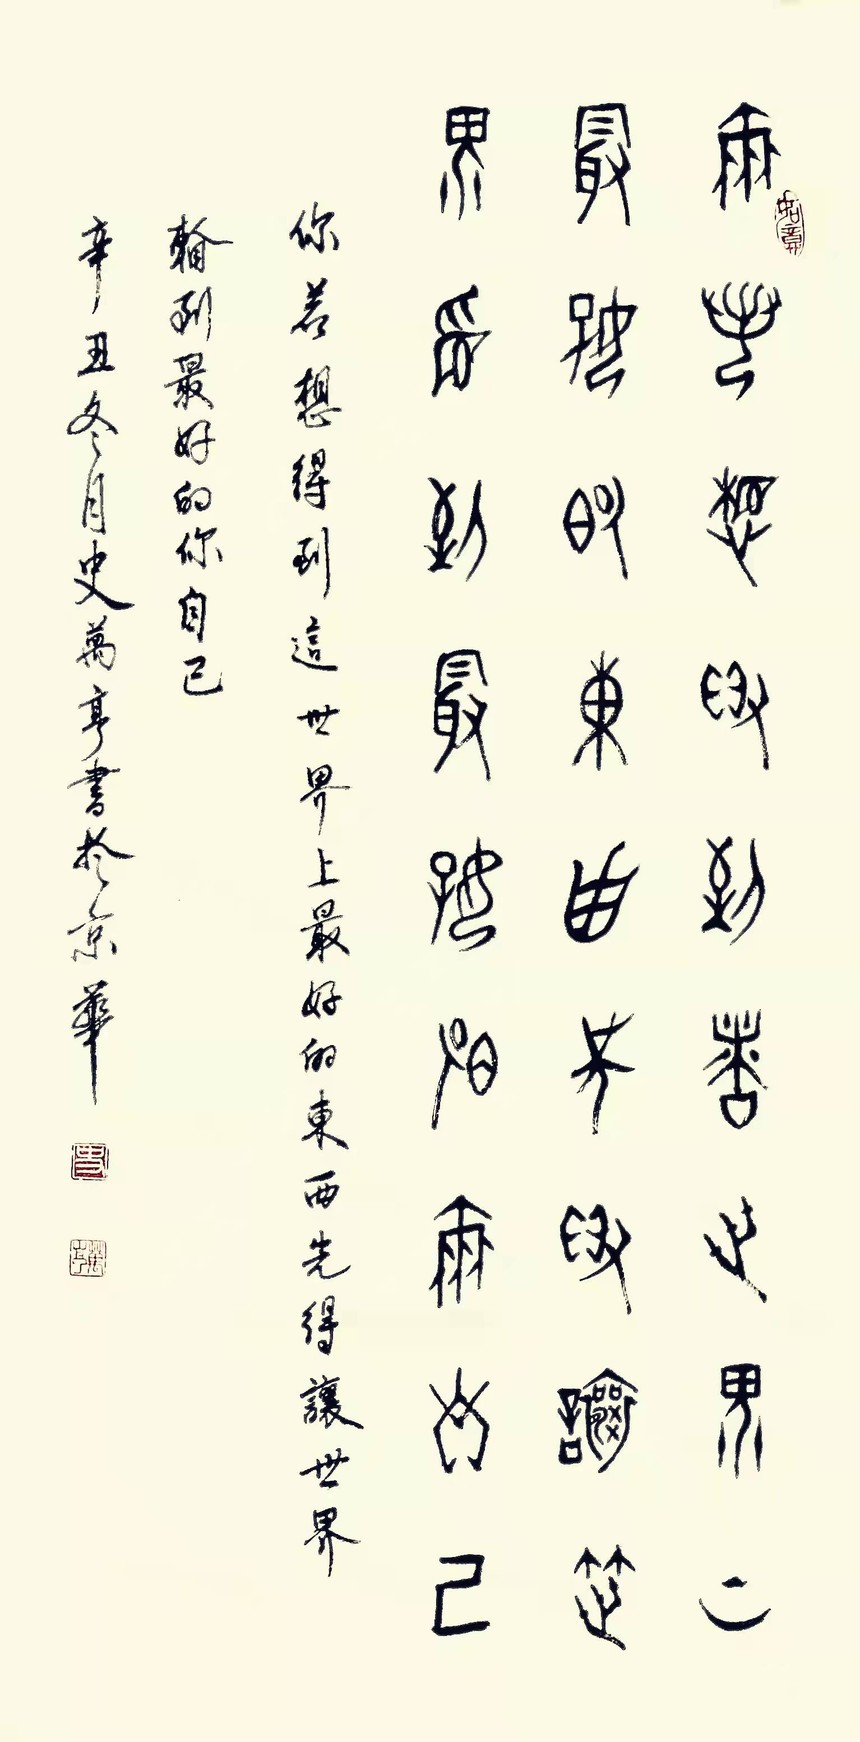 爾若想得到這世界上
最好的東西先得讓世
界看到最好的爾自己
你若想得到這世界上最好的東西先得讓世界
看到最好的你自己
辛丑冬月史萬亭書於京華
如意